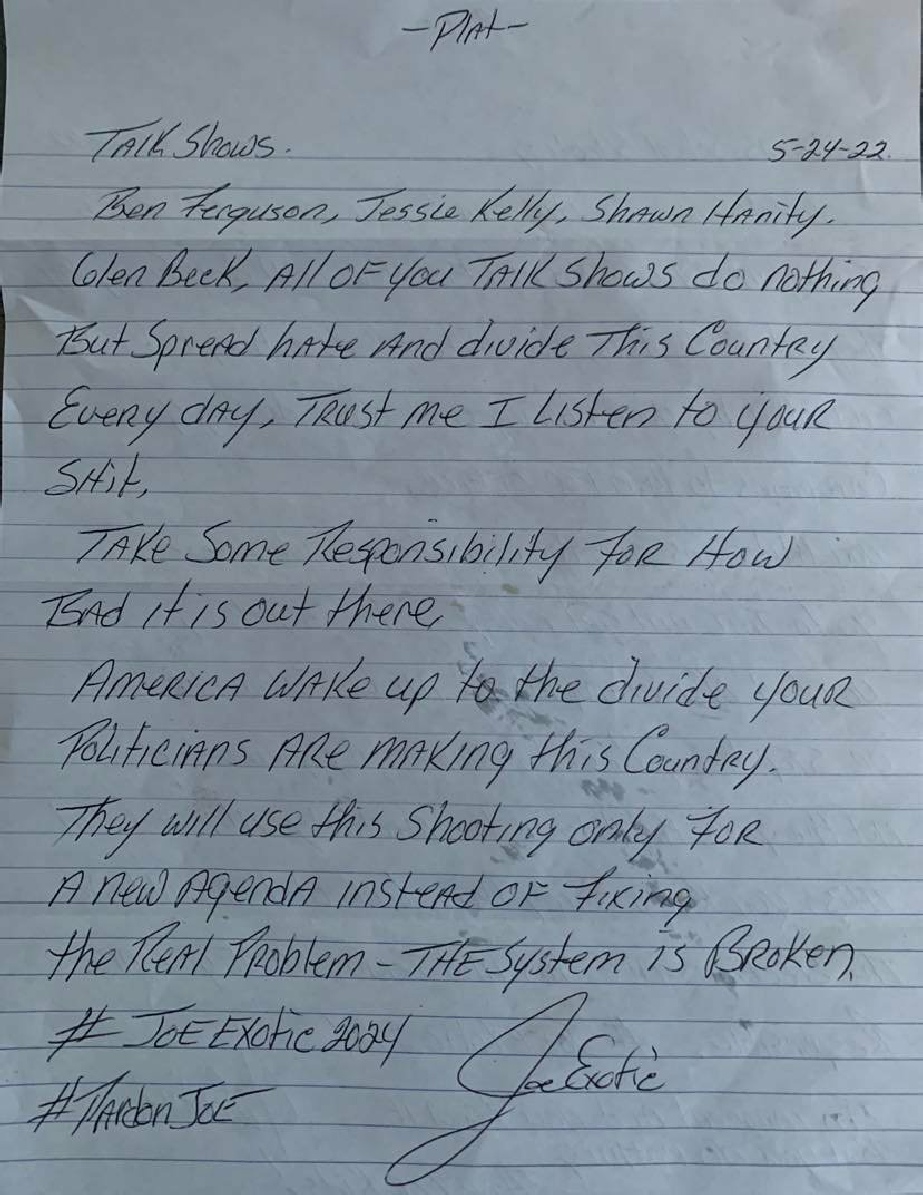 -Plat-
Talk Shows. 5-24-22.
Ben Ferguson, Jessie Kelly, Shawn Hanity.
Glen Beck, All of you Talk Shows do nothing
But Spread hate And divide This Country
Every day, Trust me I Listen to your
Shit,
Take Some Responsibility For How
Bad it is out there,
America wake up to the divide your
Politicians are making this Country.
They will use this Shooting only For
A new Agenda instead of Fixing
the Real Problem - The System is Broken,
# Joe Exotic 2024
Joe Exotic
#Pardon Joe